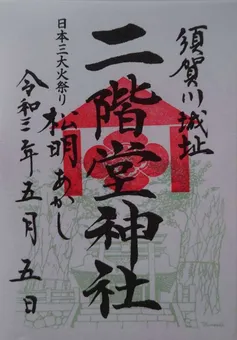 須賀川城址
二階堂神社
日本三大火祭り
松明あかし
令和三年五月五日